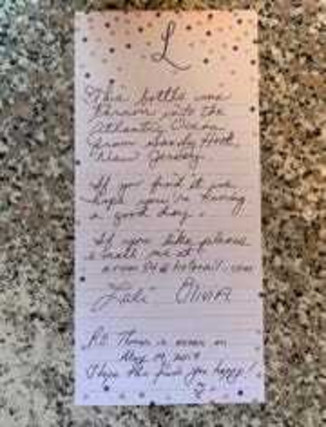 L
This bottle was
thrown into the
Atlantic Ocean
from Sandy Hook,
New Jersey.
If you find it we
hope you're having
a good day.
If you like please
e mail me at
@hotmail.com
"Lali" Olivia
P.S. Thrown in ocean on
May 19, 2019
Hope this finds you happy!